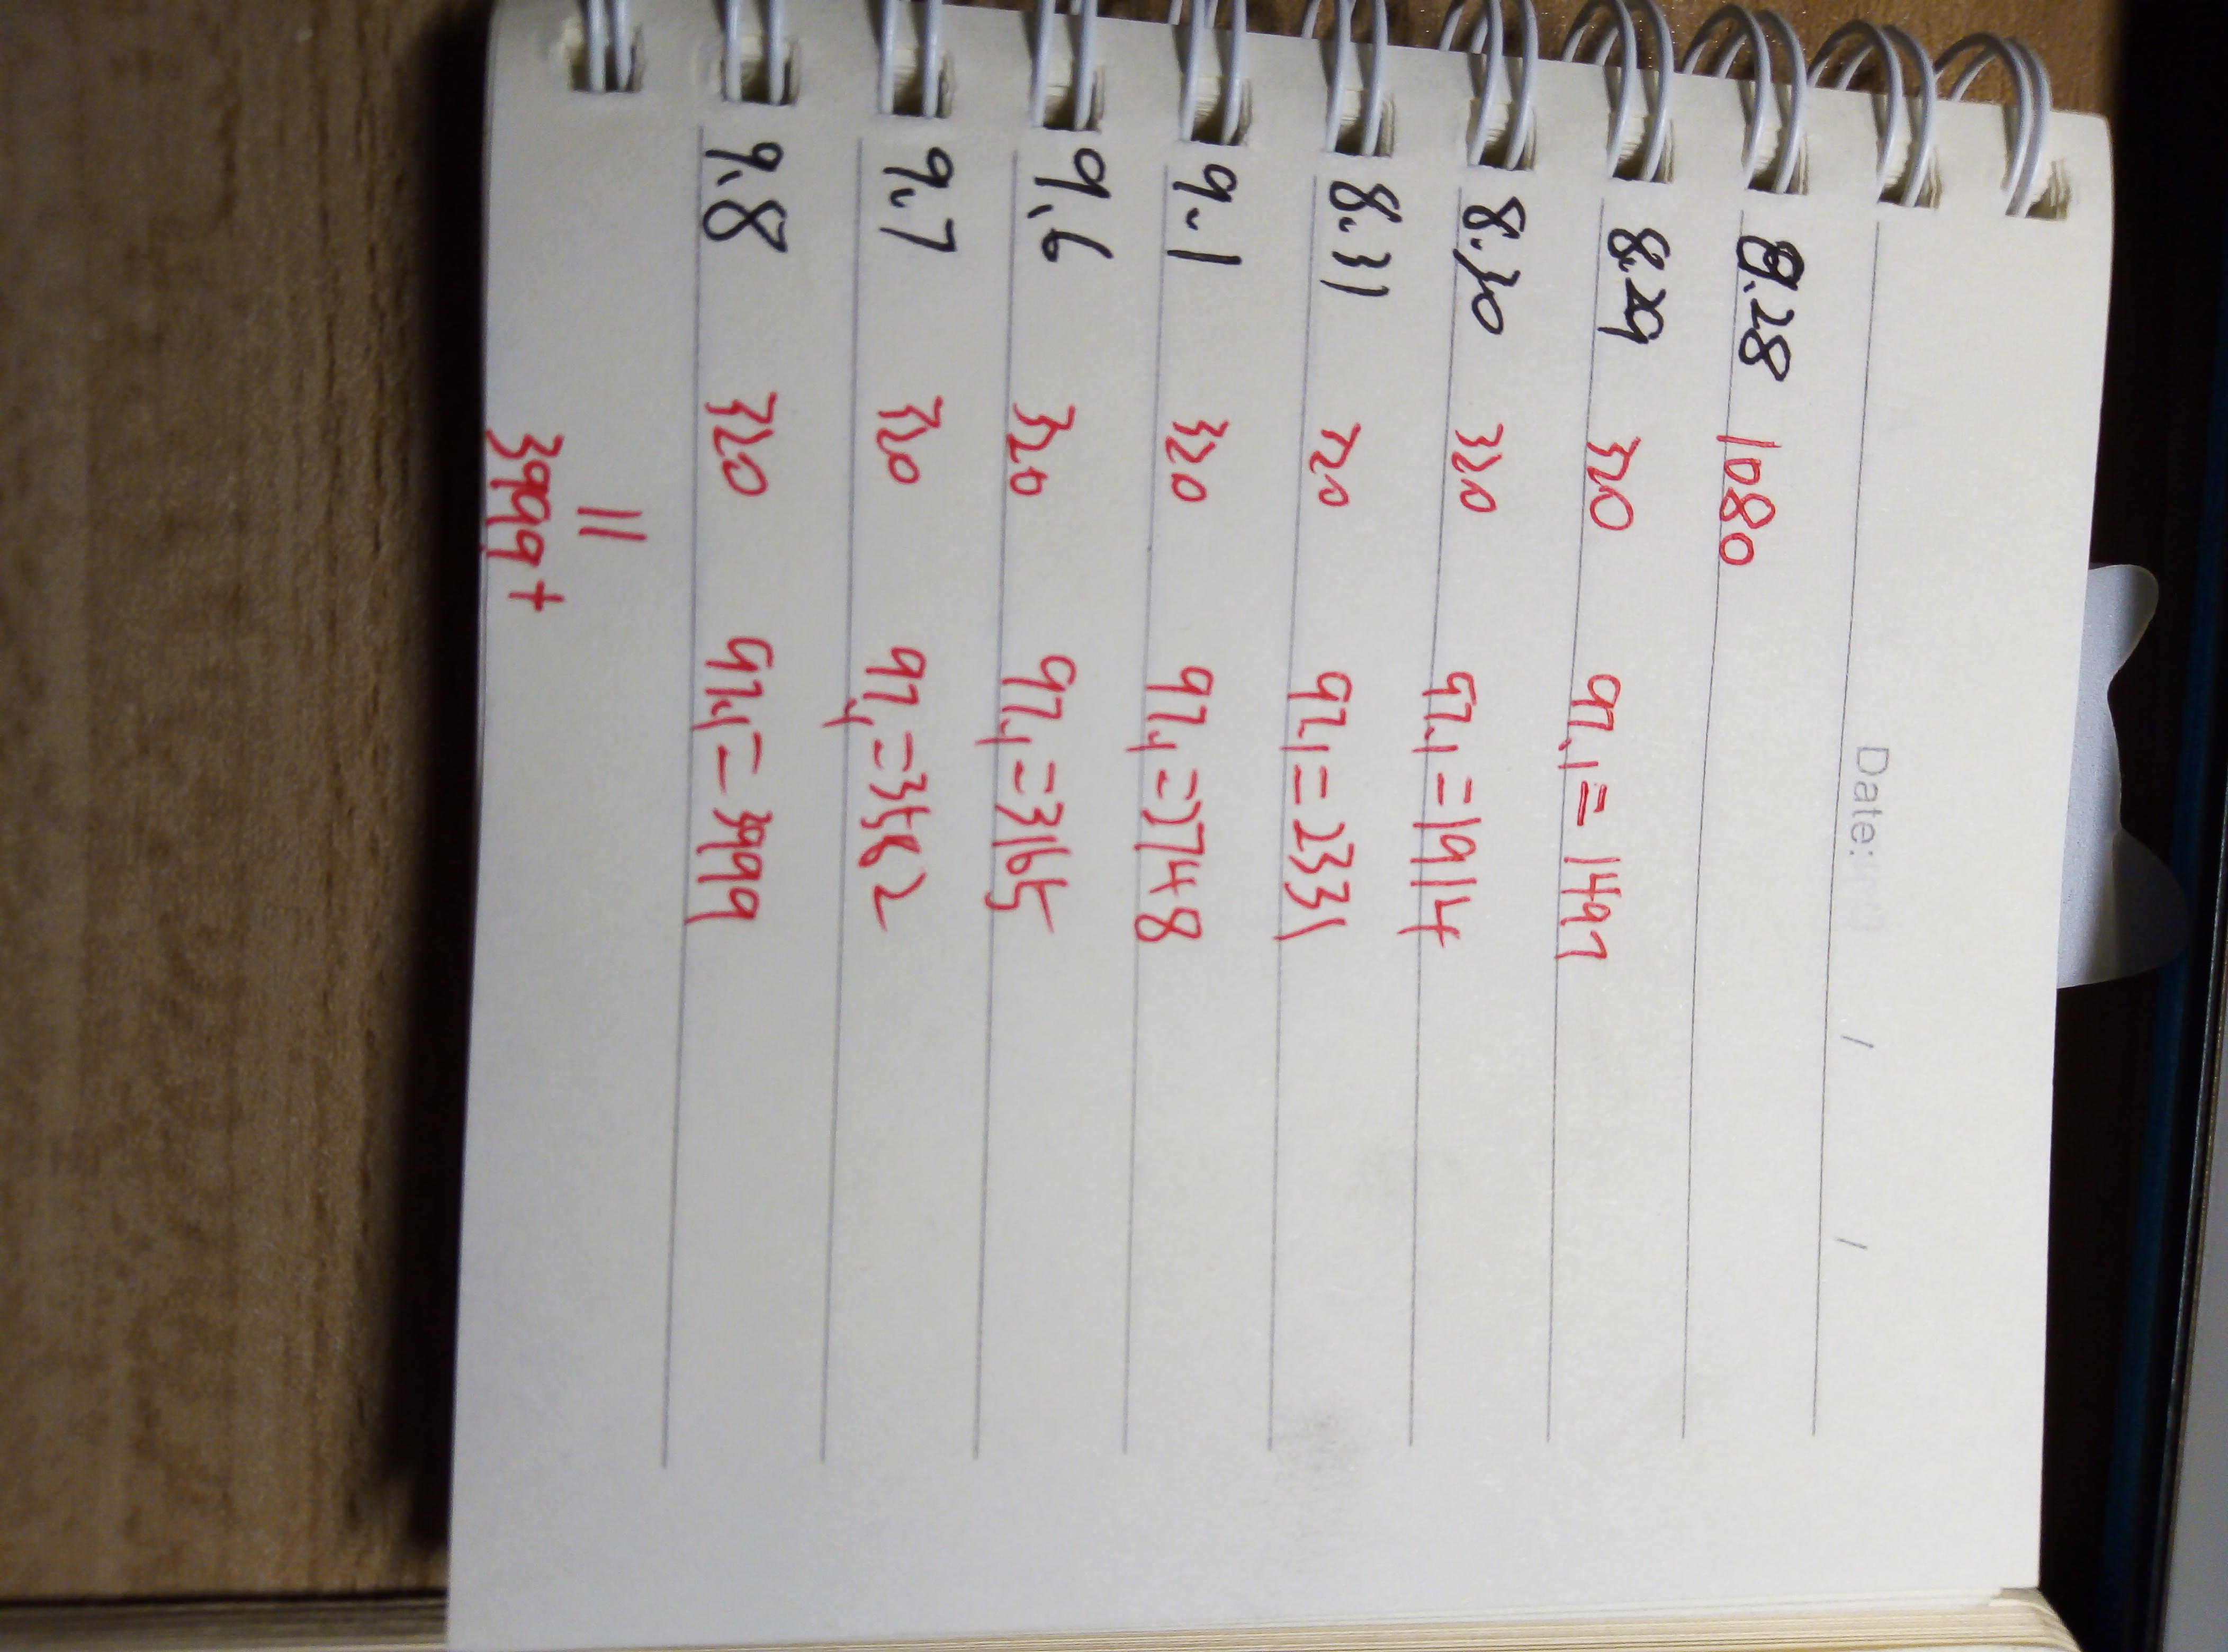 Date: / /
8.28 1080
8.29 320 97.1=1497
8.30 320 97.1=1914
8.31 320 97.1=2331
9.1 320 97.1=2748
9.6 320 97.1=3165
9.7 320 97.1=3582
9.8 320 97.1=3999
=
3999+